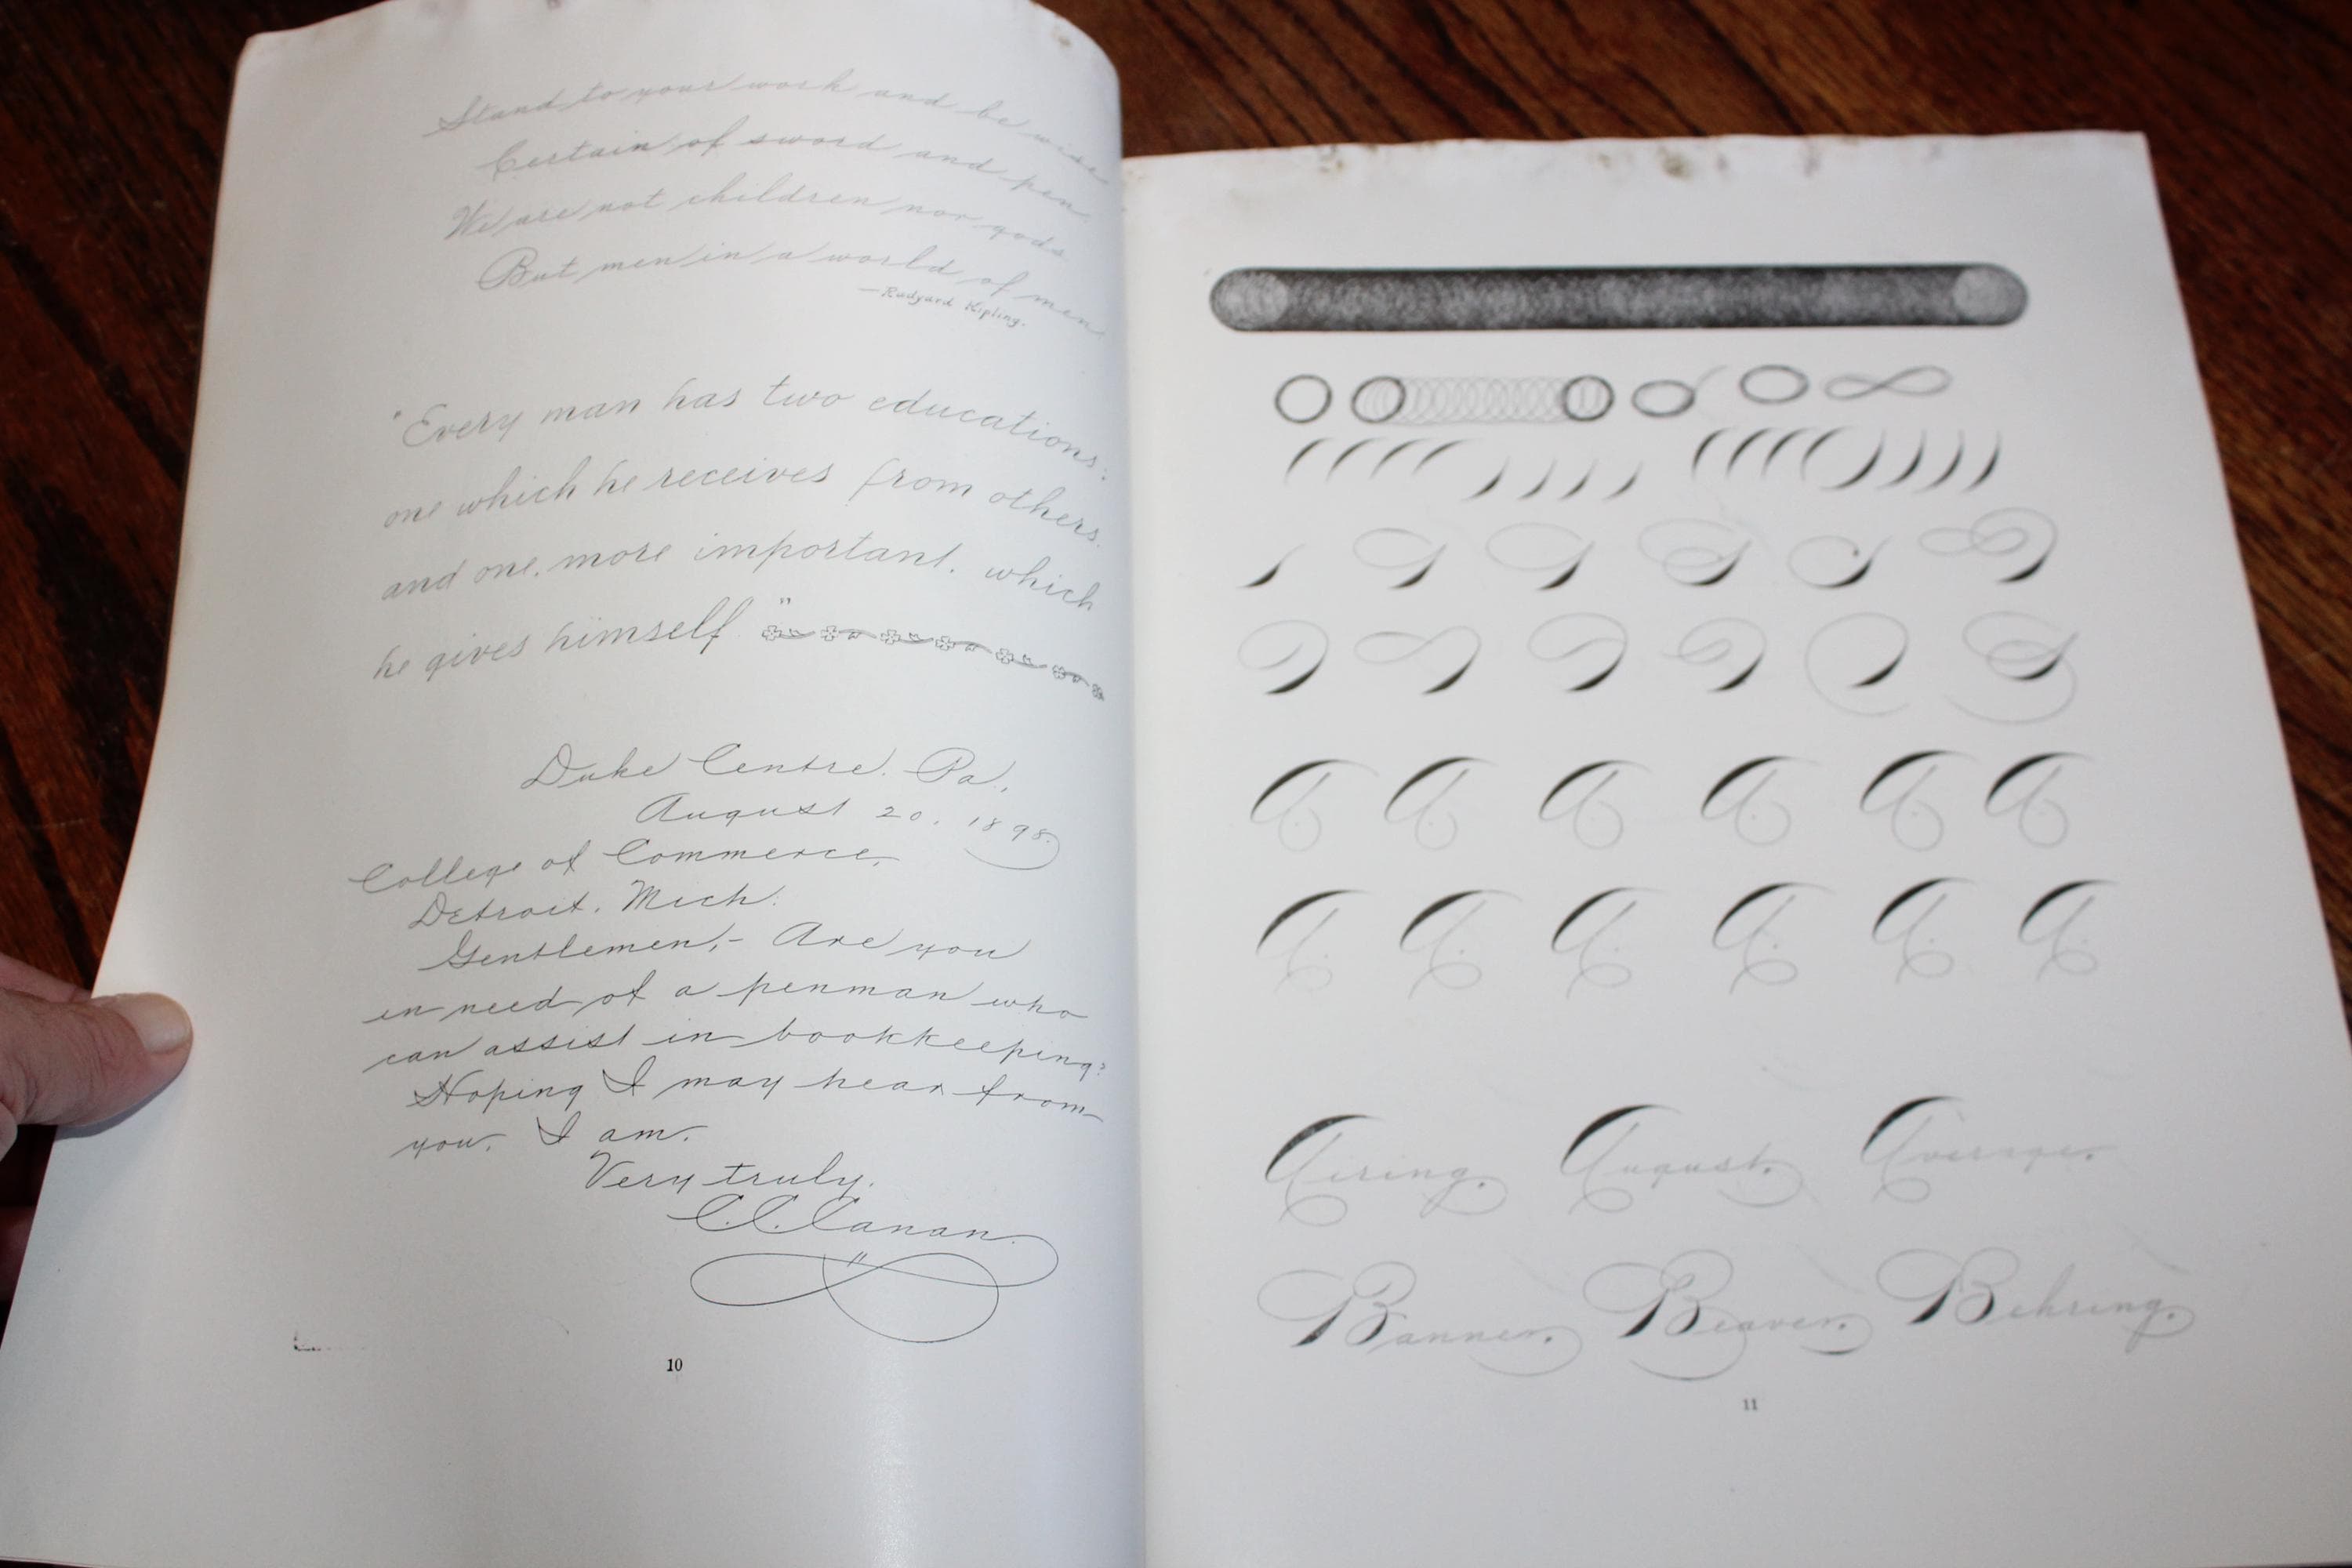 Stand to your work and be wise
Certain of sword and pen.
We are not children nor gods
But men in a world of men.
—Rudyard Kipling.
"Every man has two educations:
one which he receives from others.
and one, more important, which
he gives himself."
Duke Centre. Pa.,
August 20, 1898.
College of Commerce,
Detroit, Mich.
Gentlemen,- Are you
in need of a penman who
can assist in bookkeeping?
Hoping I may hear from
you, I am.
Very truly.
C.C. Canan.
10
A A A A A A
A A A A A A
Airing. August. Average.
Banner. Beaver. Behring.
11